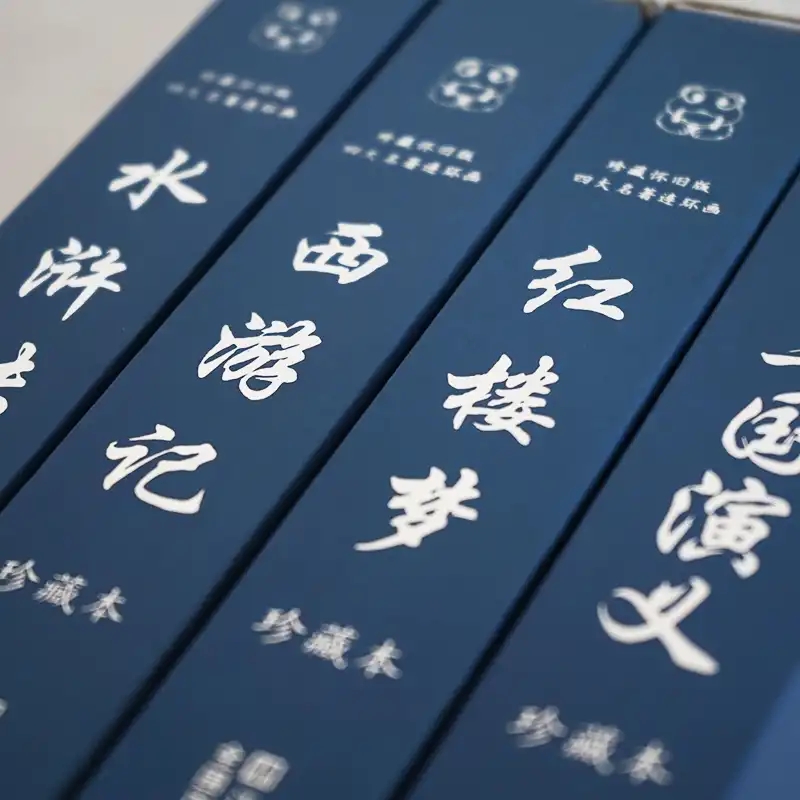 珍藏怀旧版
四大名著连环画
水浒
珍藏本
珍藏怀旧版
四大名著连环画
西游记
珍藏本
珍藏怀旧版
四大名著连环画
红楼梦
珍藏本
国演义